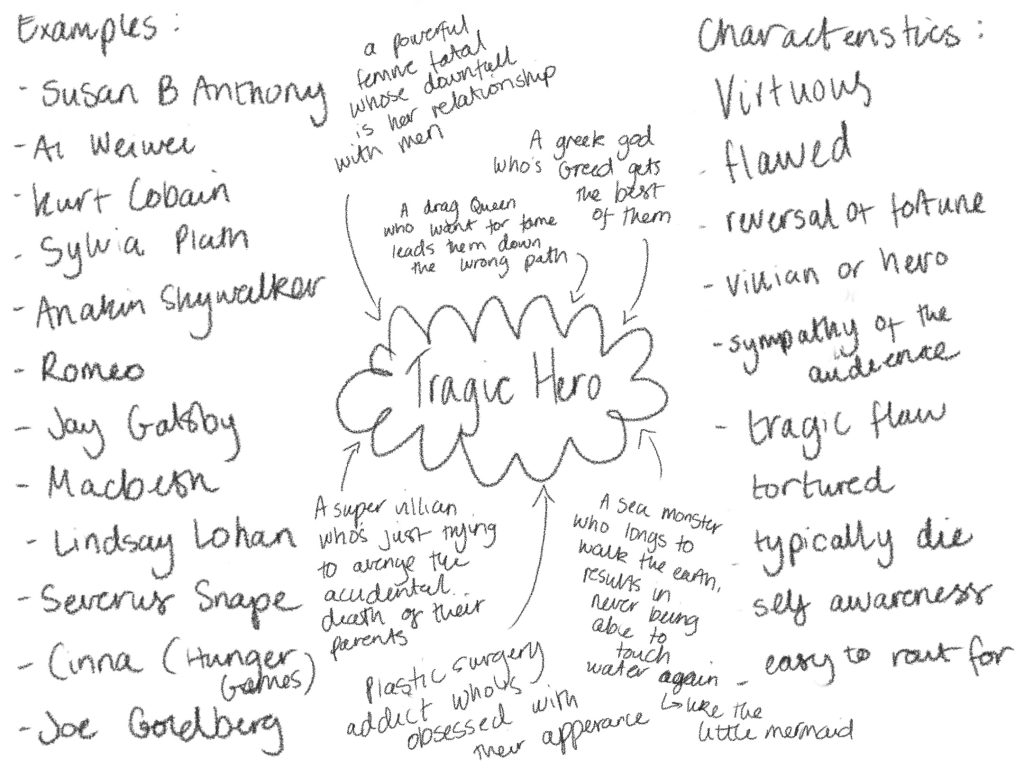 Examples:
- Susan B Anthony
- Ai Weiwei
- Kurt Cobain
- Sylvia Plath
- Anakin Skywalker
- Romeo
- Jay Gatsby
- Macbeth
- Lindsay Lohan
- Severus Snape
- Cinna (Hunger
Games)
- Joe Goldberg
a powerful
femme fatal
whose downfall
is her relationship
with men
A greek god
who's Greed gets
the best
of them
A drag Queen
who want for fame
leads them down
the wrong path
Tragic Hero
A super villian
who's just trying
to avenge the
accidental
death of their
parents
Plastic surgery
addict who's
obsessed with
their apperance
A sea monster
who longs to
walk the earth,
results in
never being
able to
touch
water again
↳ like the
little mermaid
Characteristics:
Virtuous
- flawed
- reversal of fortune
- villian or hero
- sympathy of the
audience
- tragic flaw
tortured
- typically die
- self awareness
- easy to rout for